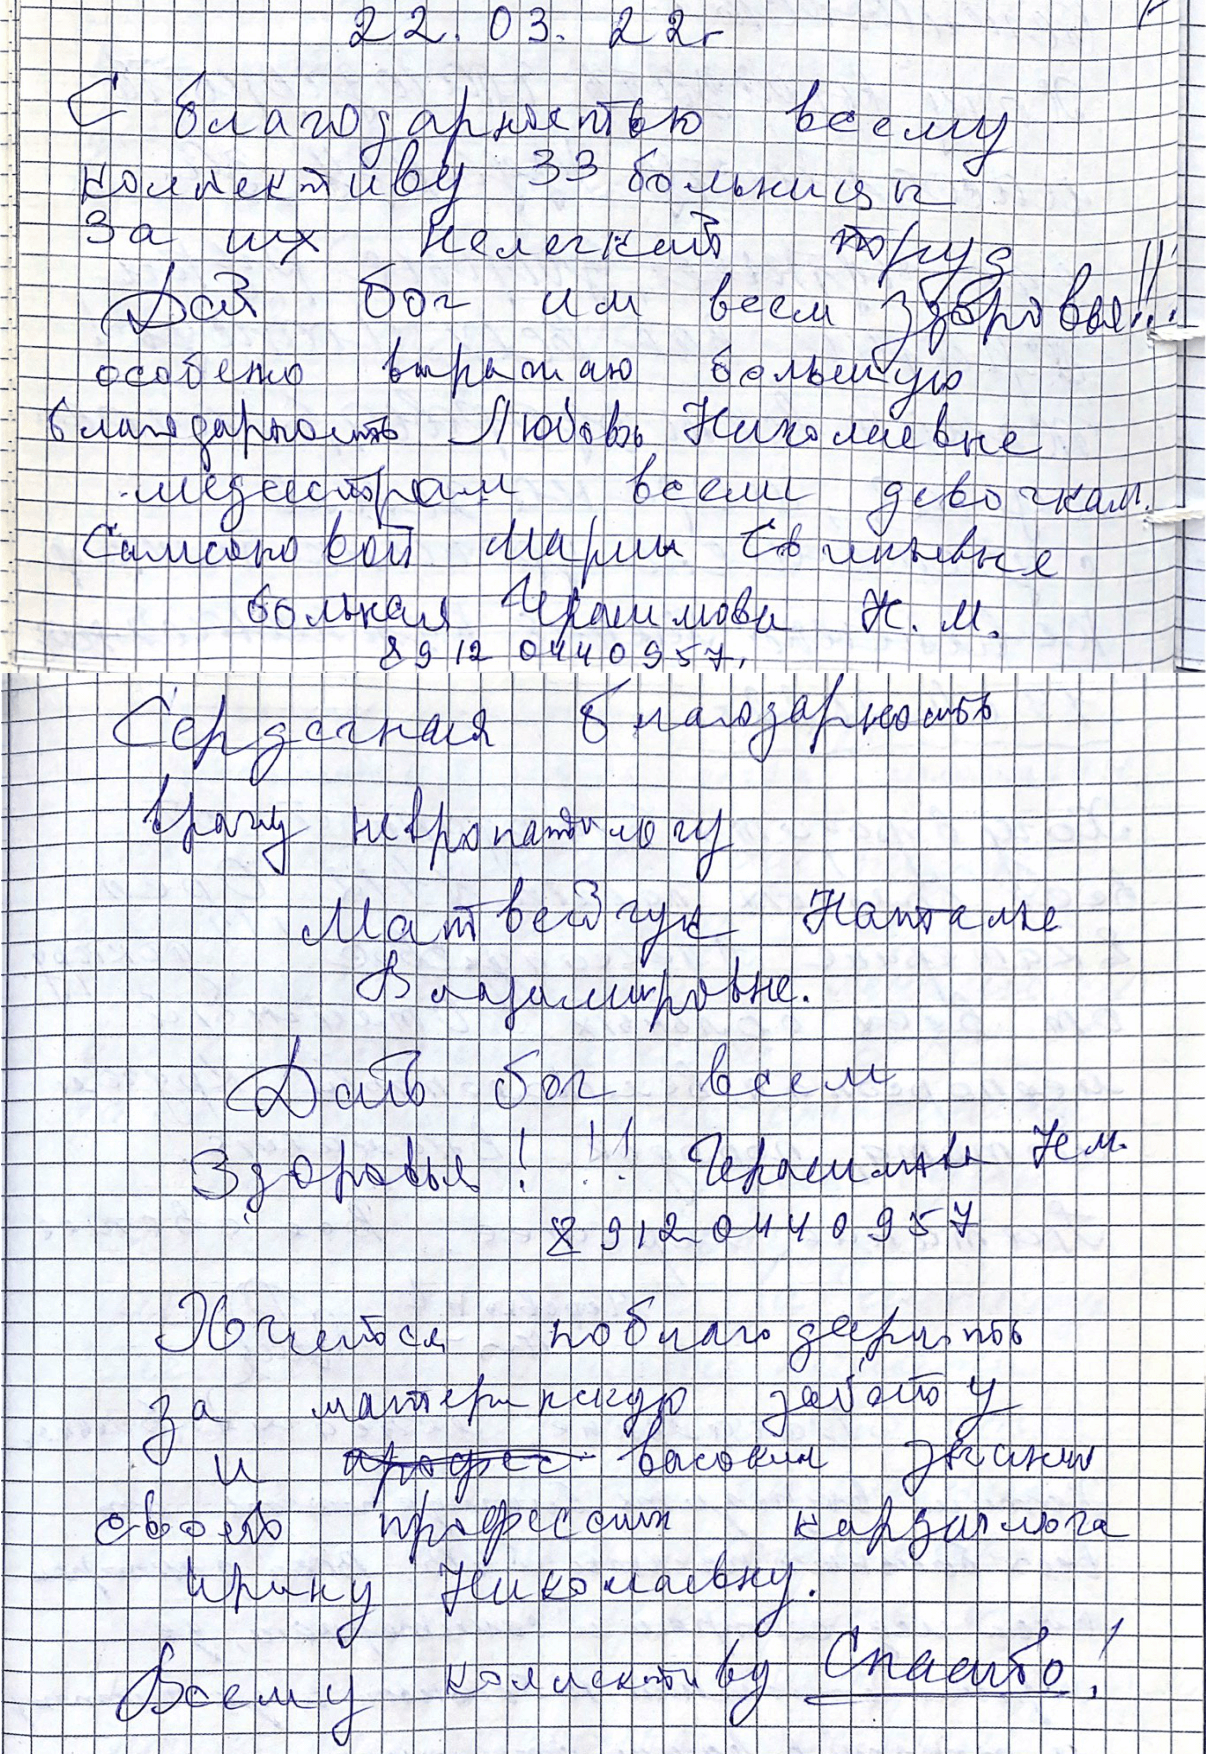 22.03.22г
С благодарностью всему
коллективу 33 больницы
за их нелегкий труд
Дай бог им всем здоровья!!!
особено выражаю большую
благодарность Любовь Николаевне
медсестрам всем девочкам.
Самсоновой Марии
больная Герасимова Н. М.
8912 0440957.
Сердечная благодарность
врачу невропатологу
Матвейчук Наталье
Владимировне.
Дать бог всем
Здоровья! !! Герасимова Н.М.
8 912 0440957
Хочется поблагодарить
за материнскую заботу
и профес высокие знания
своего профессии кардиолога
Ирину Николаевну.
Всему коллективу Спасибо!